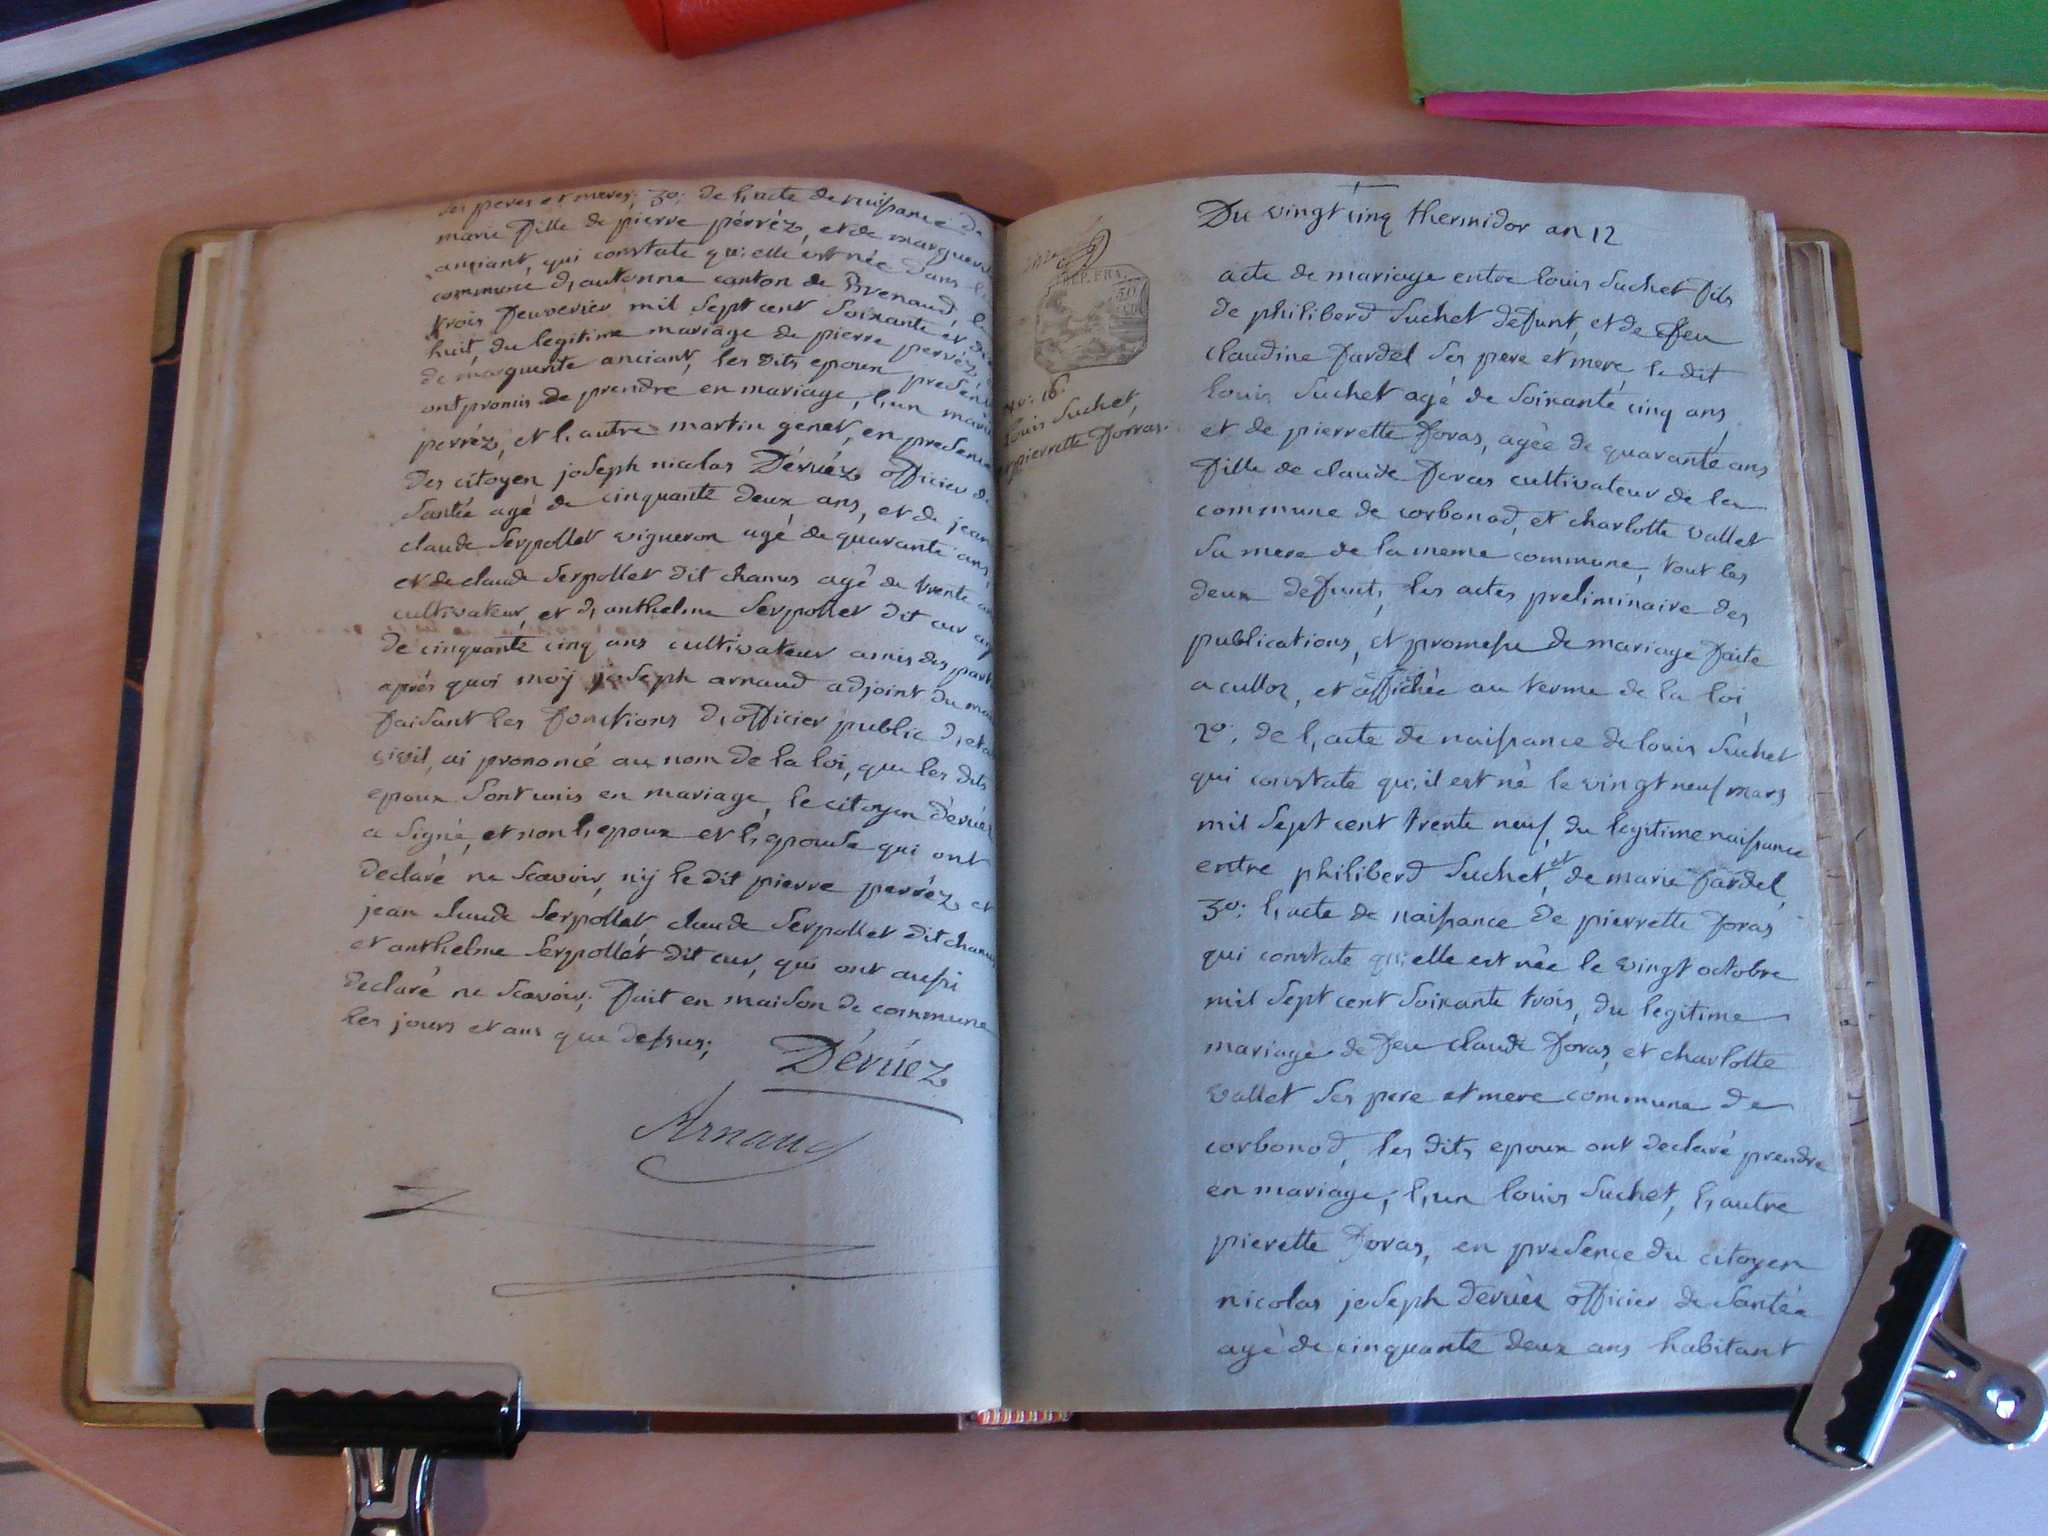 ses peres et meres; 3o; de l,acte de naissance de
marie fille de pierre pérréz, et de marguerite
anciant, qui constate qu,elle est née dans la
commune d,autonne canton de Brenaud, le
trois feuverier mil sept cent soixante et dix
huit, du legitime mariage de pierre perréz, et
de marguerite anciant, les dits epoux presents
ont promis de prendre en mariage, l,un marie
perréz, et l,autre martin genet, en presence
des citoyen joseph nicolas Déruéz officier de
santée agé de cinquante deux ans, et de jean
claude Serpollet vigneron agé de quarante ans,
et de claude Serpollet dit chanus agé de trente ans
cultivateur, et d,anthelme Serpollet dit cur agé
de cinquante cinq ans cultivateur amis des parti
aprés quoi moÿ joseph arnaud adjoint du maire
faisant les fonctions d,officier public d,etat
civil, ai prononcé au nom de la loi, que les dits
epoux sont unis en mariage, le citoyen Déruéz
a signé, et non l,epoux et l,epouse qui ont
declaré ne scavoir, nÿ le dit pierre perréz, et
jean claude Serpollet, claude Serpollet dit chanus
et anthelme Serpollet dit cur, qui ont aussi
declaré ne scavoir; fait en maison de commune
les jours et ans que dessus;
Déruéz
Arnaud
Du vingt cinq thermidor an 12
REP. FRA.
no: 16.
louis Suchet,
pierrette forras.
acte de mariage entre louis Suchet fils
de philiberd Suchet defunt, et de feu
claudine fardel ses pere et mere, le dit
louis Suchet agé de soixante cinq ans,
et de pierrette foras, agée de quarante ans
fille de claude foras cultivateur de la
commune de corbonod, et charlotte vallet
sa mere de la meme commune, tout les
deux defunt, les actes preliminaire des
publications, et promesse de mariage faite
a culloz, et affichée au terme de la loi,
2o; de l,acte de naissance de louis Suchet
qui constate qu,il est né le vingt neuf mars
mil sept cent trente neuf, du legitime naissance
entre philiberd Suchet, et de marie fardel,
3o; l,acte de naissance de pierrette foras
qui constate qu,elle est née le vingt octobre
mil sept cent soixante trois, du legitime
mariage de feu claude foras, et charlotte
vallet ses pere et mere commune de
corbonod, les dits epoux ont declaré prendre
en mariage, l,un louis Suchet, l,autre
pierette foras, en presence du citoyen
nicolas joseph deruéz officier de santée
agé de cinquante deux ans habitant